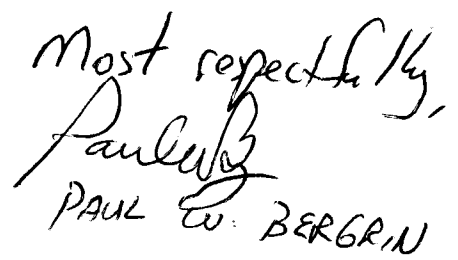 Most respectfully,
Paul W B
PAUL W. BERGRIN